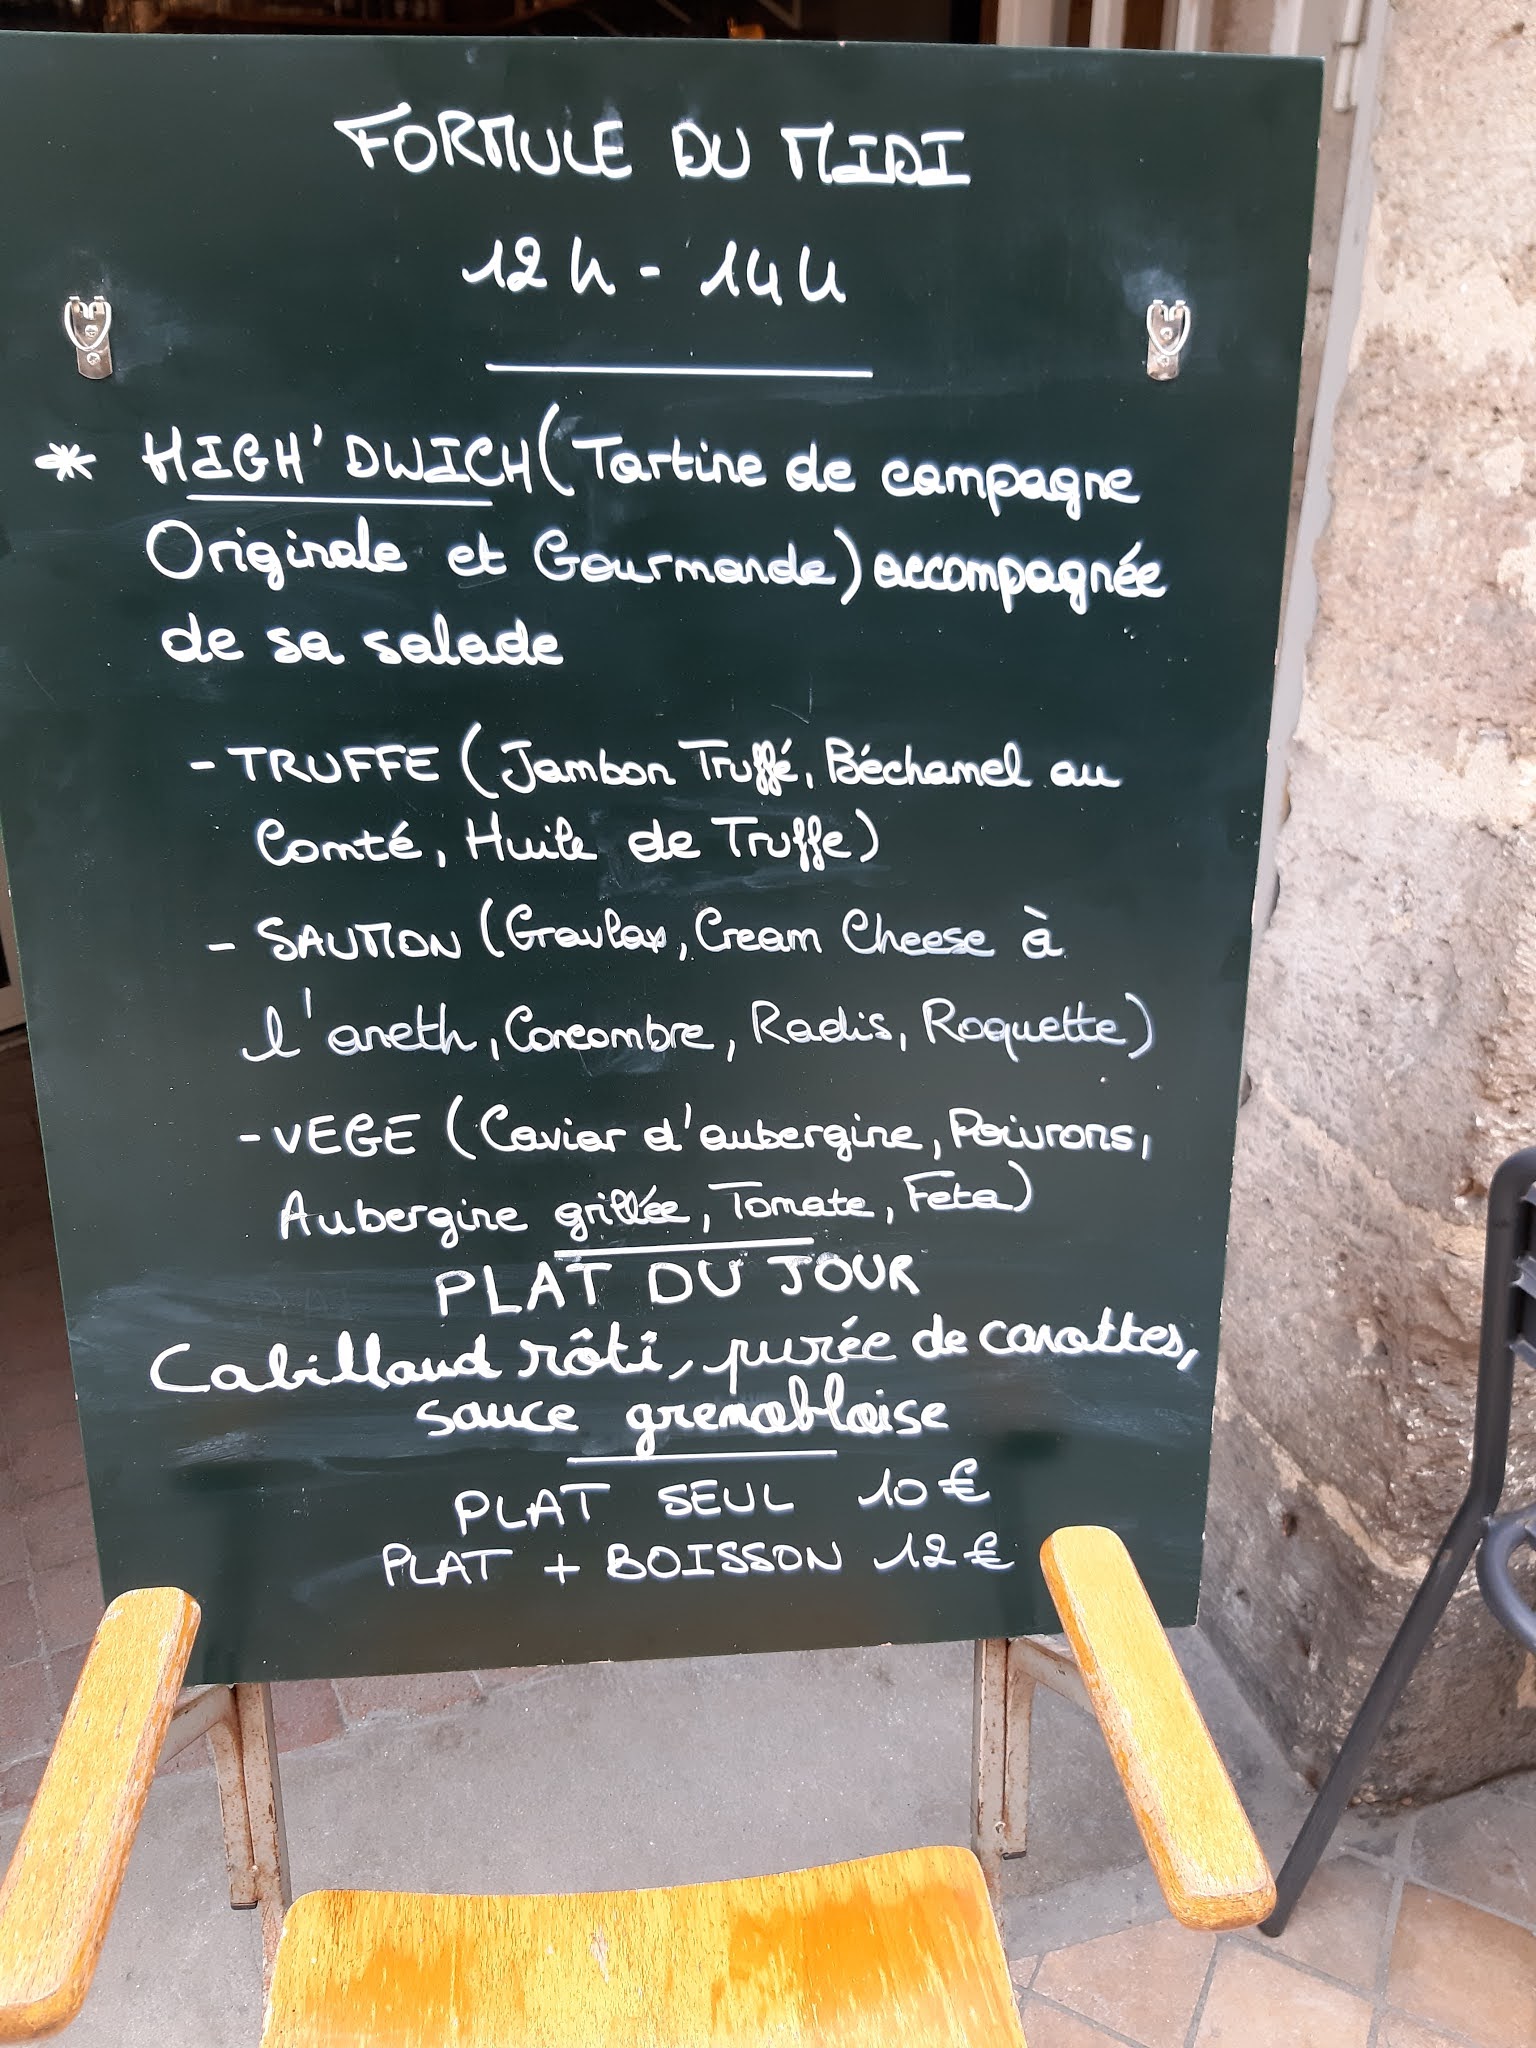 FORMULE DU MIDI
12h - 14h
* HIGH'DWICH (Tartine de campagne
Originale et Gourmande) accompagnée
de sa salade
- TRUFFE (Jambon Truffé, Béchamel au
Comté, Huile de Truffe)
- SAUMON (Gravlax, Cream Cheese à
l'aneth, Concombre, Radis, Roquette)
- VEGE (Caviar d'aubergine, Poivrons,
Aubergine grillée, Tomate, Feta)
PLAT DU JOUR
Cabillaud rôti, purée de carottes,
sauce grenobloise
PLAT SEUL 10€
PLAT + BOISSON 12€